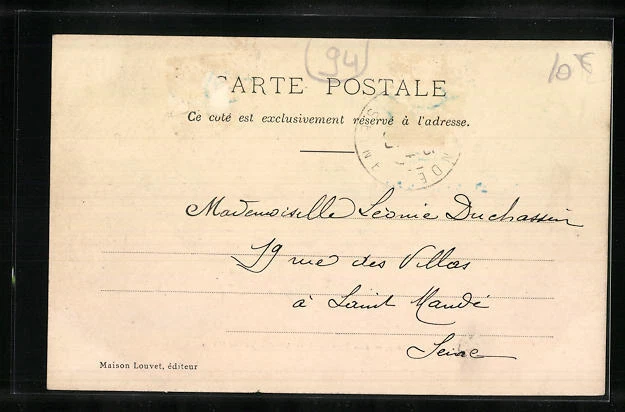 (94)
10€
CARTE POSTALE
Ce coté est exclusivement réservé à l'adresse.
Mademoiselle Léonie Duchassin
19 rue des Villas
à Saint Mandé
Seine
Maison Louvet, éditeur